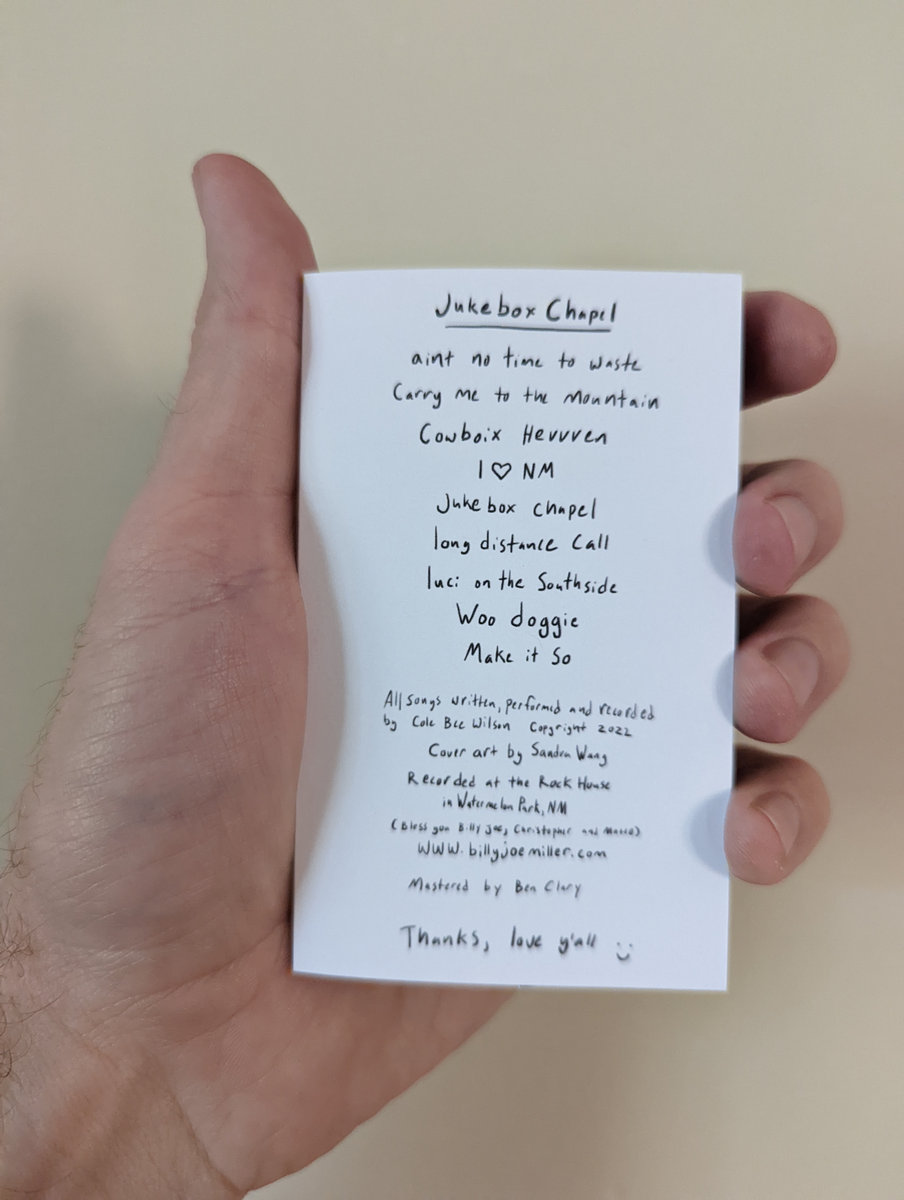 Jukebox Chapel
aint no time to waste
Carry me to the mountain
Cowboix Hevvven
I ♡ NM
Jukebox chapel
long distance Call
luci on the Southside
Woo doggie
Make it So
All songs written, performed and recorded
by Cole Bee Wilson Copyright 2022
Cover art by Sandra Wang
Recorded at the Rock House
in Watermelon Park, NM
(Bless you Billy Joe, Christopher and
www.billyjoemiller.com
Mastered by Ben Clary
Thanks, love y'all